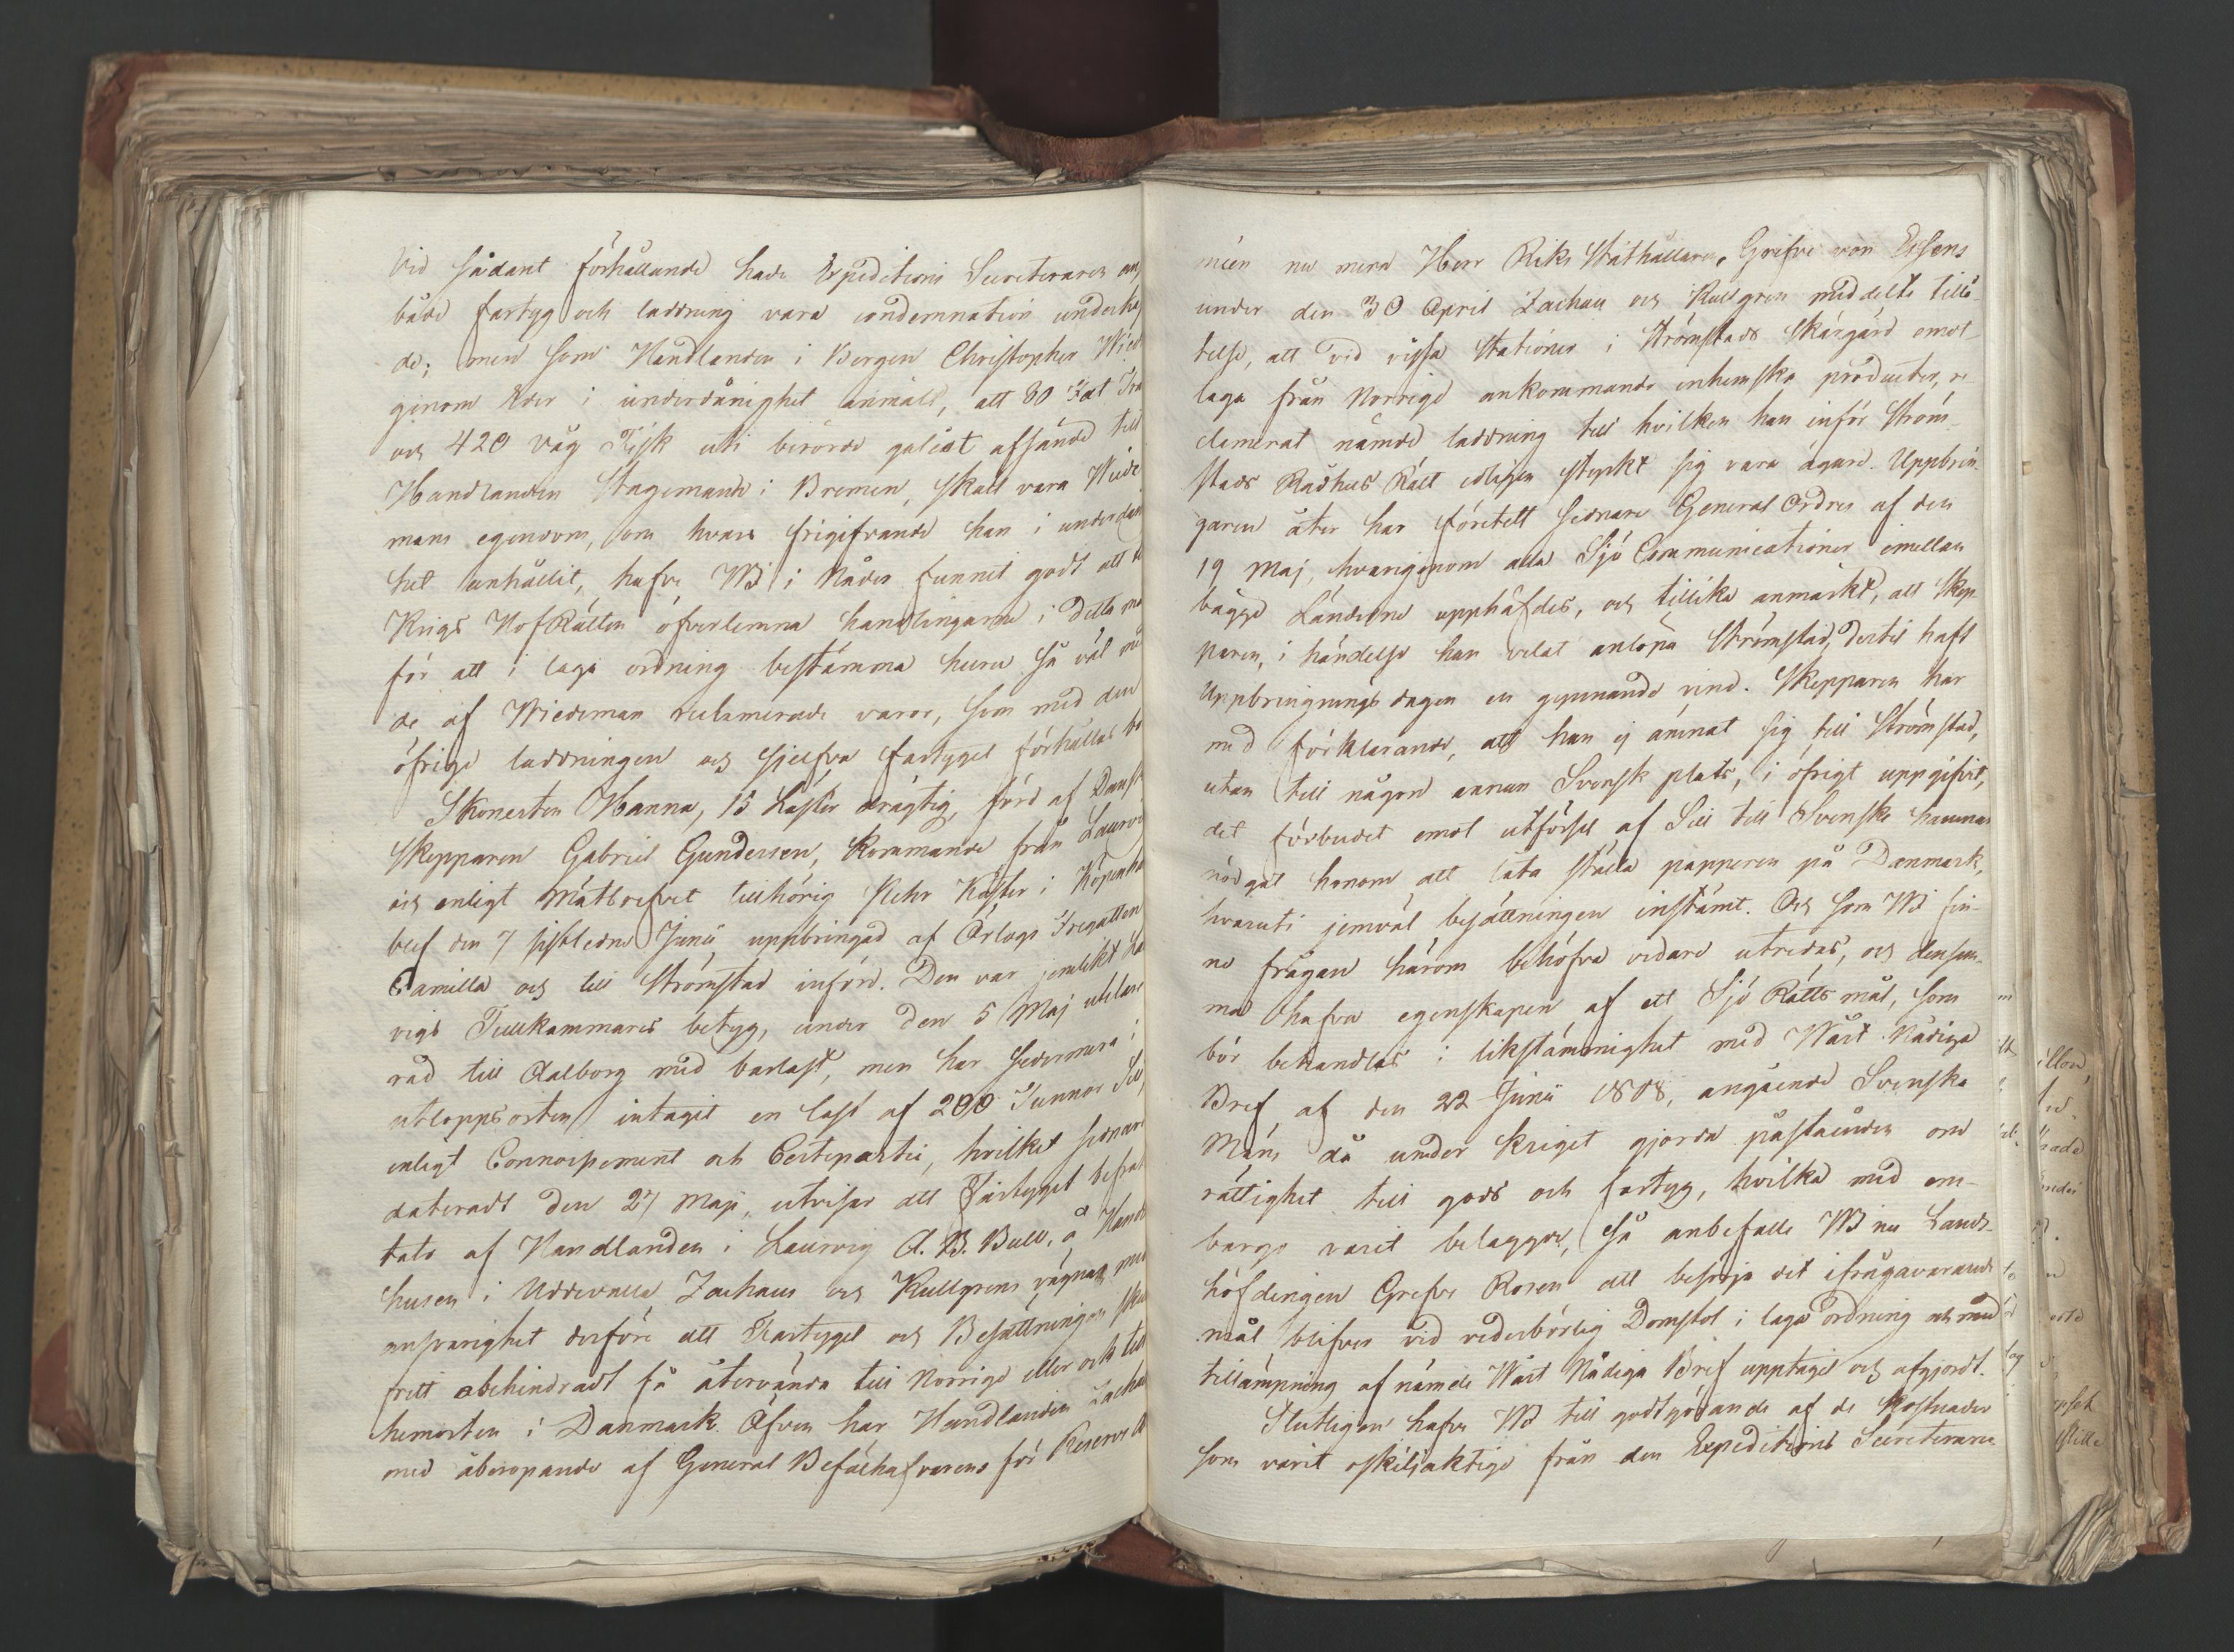 Vid sådant förhållande hade Expeditions Secreteraren an
både fartyg och laddning vara condemnation underka
de; men som Handlanden i Bergen Christopher Wied
genom Eder i underdånighet anmält, att 80 Fat Tra
och 420 Våg Fisk uti berörde galeat afsände till
Handlanden Stagemann i Bremen, skall vara Wiede
mans egendom, om hvars frigifvande han i underdån
het anhållit, hafve Wi i Nåder funnit godt att
Krigs HofRätten öfverlemna handlingarne i detta må
för att i laga ordning bestämma huru så väl
de af Wiedeman reclamerade varor, som med den
öfrige laddningen och sjelfva fartyget förhållas bö
Skonerten Hanna, 15 Läster drägtig, förd af Dansk
skepparen Gabriel Gundersen, kommande från Laurvi
och enligt Mätbrefvet tillhörig Peter Köster i Köpenha
blef den 7 sistledne Junii uppbringad af Örlogs Fregatten
Camilla och till Strömstad införd. Den var jemlikt La
vigs Tullkammares betyg, under den 5 Maj utklare
rad till Aalborg med barlast, men har sedermera i
utloppsorten intagit en last af 200 Tunnor Sill,
enligt Connoissement och Certeparti, hvilket sednare
dateradt den 27 Maji, utvisar att Fartyget befrak
tats af Handlanden i Laurvig A. B. Bull, å Hand
husen i Uddevalla Zachaus och Kullgrens vägnar, med
ansvarighet derföre att Fartyget och Besättningen skul
fritt obehindradt få återvända till Norrige eller och till
hemorten i Danmark. Äfven har Handlanden Zachau
med åberopande af General Befälhafvarens för Reserve A
méen nu mera Herr Riks Ståthållaren, Grefve von Essens
under den 30 April Zachau och Kullgren meddelte tillå-
telse, att vid vissa Stationer i Strömstads Skärgård emot-
taga från Norrige ankommande inhemska producter, re
clamerat nämde laddning till hvilken han inför Ström-
stads Rådhus Rätt edligen styrkt sig vara ägare. Uppbrin-
garen åter har företett sednare General Ordres af den
19 Maj, hvarigenom alla Sjö Communicationer emellan
bägge Länderne upphäfdes, och tillika anmärkt, att Skep
paren, i händelse han velat anlöpa Strömstad, dertil haft
Uppbringnings dagen en gynnande vind. Skepparen har
med förklarande, att han ej ämnat sig till Strömstad,
utan till någon annan Svensk plats, i öfrigt uppgifvit,
det förbudet emot utförsel af Sill till Svenske hamnar
nödgat honom att låta ställa papperen på Danmark,
hvaruti jemväl besättningen instämt. Och som Wi fin-
ne frågan härom behöfva vidare utredas, och densam-
ma hafva egenskapen af ett Sjö Rätts mål, som
bör behandlas i likstämmighet med Wårt Nådiga
Bref af den 22 Junii 1808, angående Svenska
Mäns då under kriget gjorda påståenden om
rättighet till gods och fartyg, hvilka med em-
bargo varit belaggde, Så anbefalle Wi nu Lands-
höfdingen Grefve Rosen att besörja det ifrågavarande
mål blifver vid vederbörlig Domstol i laga ordning och med
tillämpning af nämde Wårt Nådiga Bref upptaget och afgjordt.
Slutligen hafve Wi till godtgörande af de kostnader
som varit oskiljaktige från den Expeditions Secreteraren